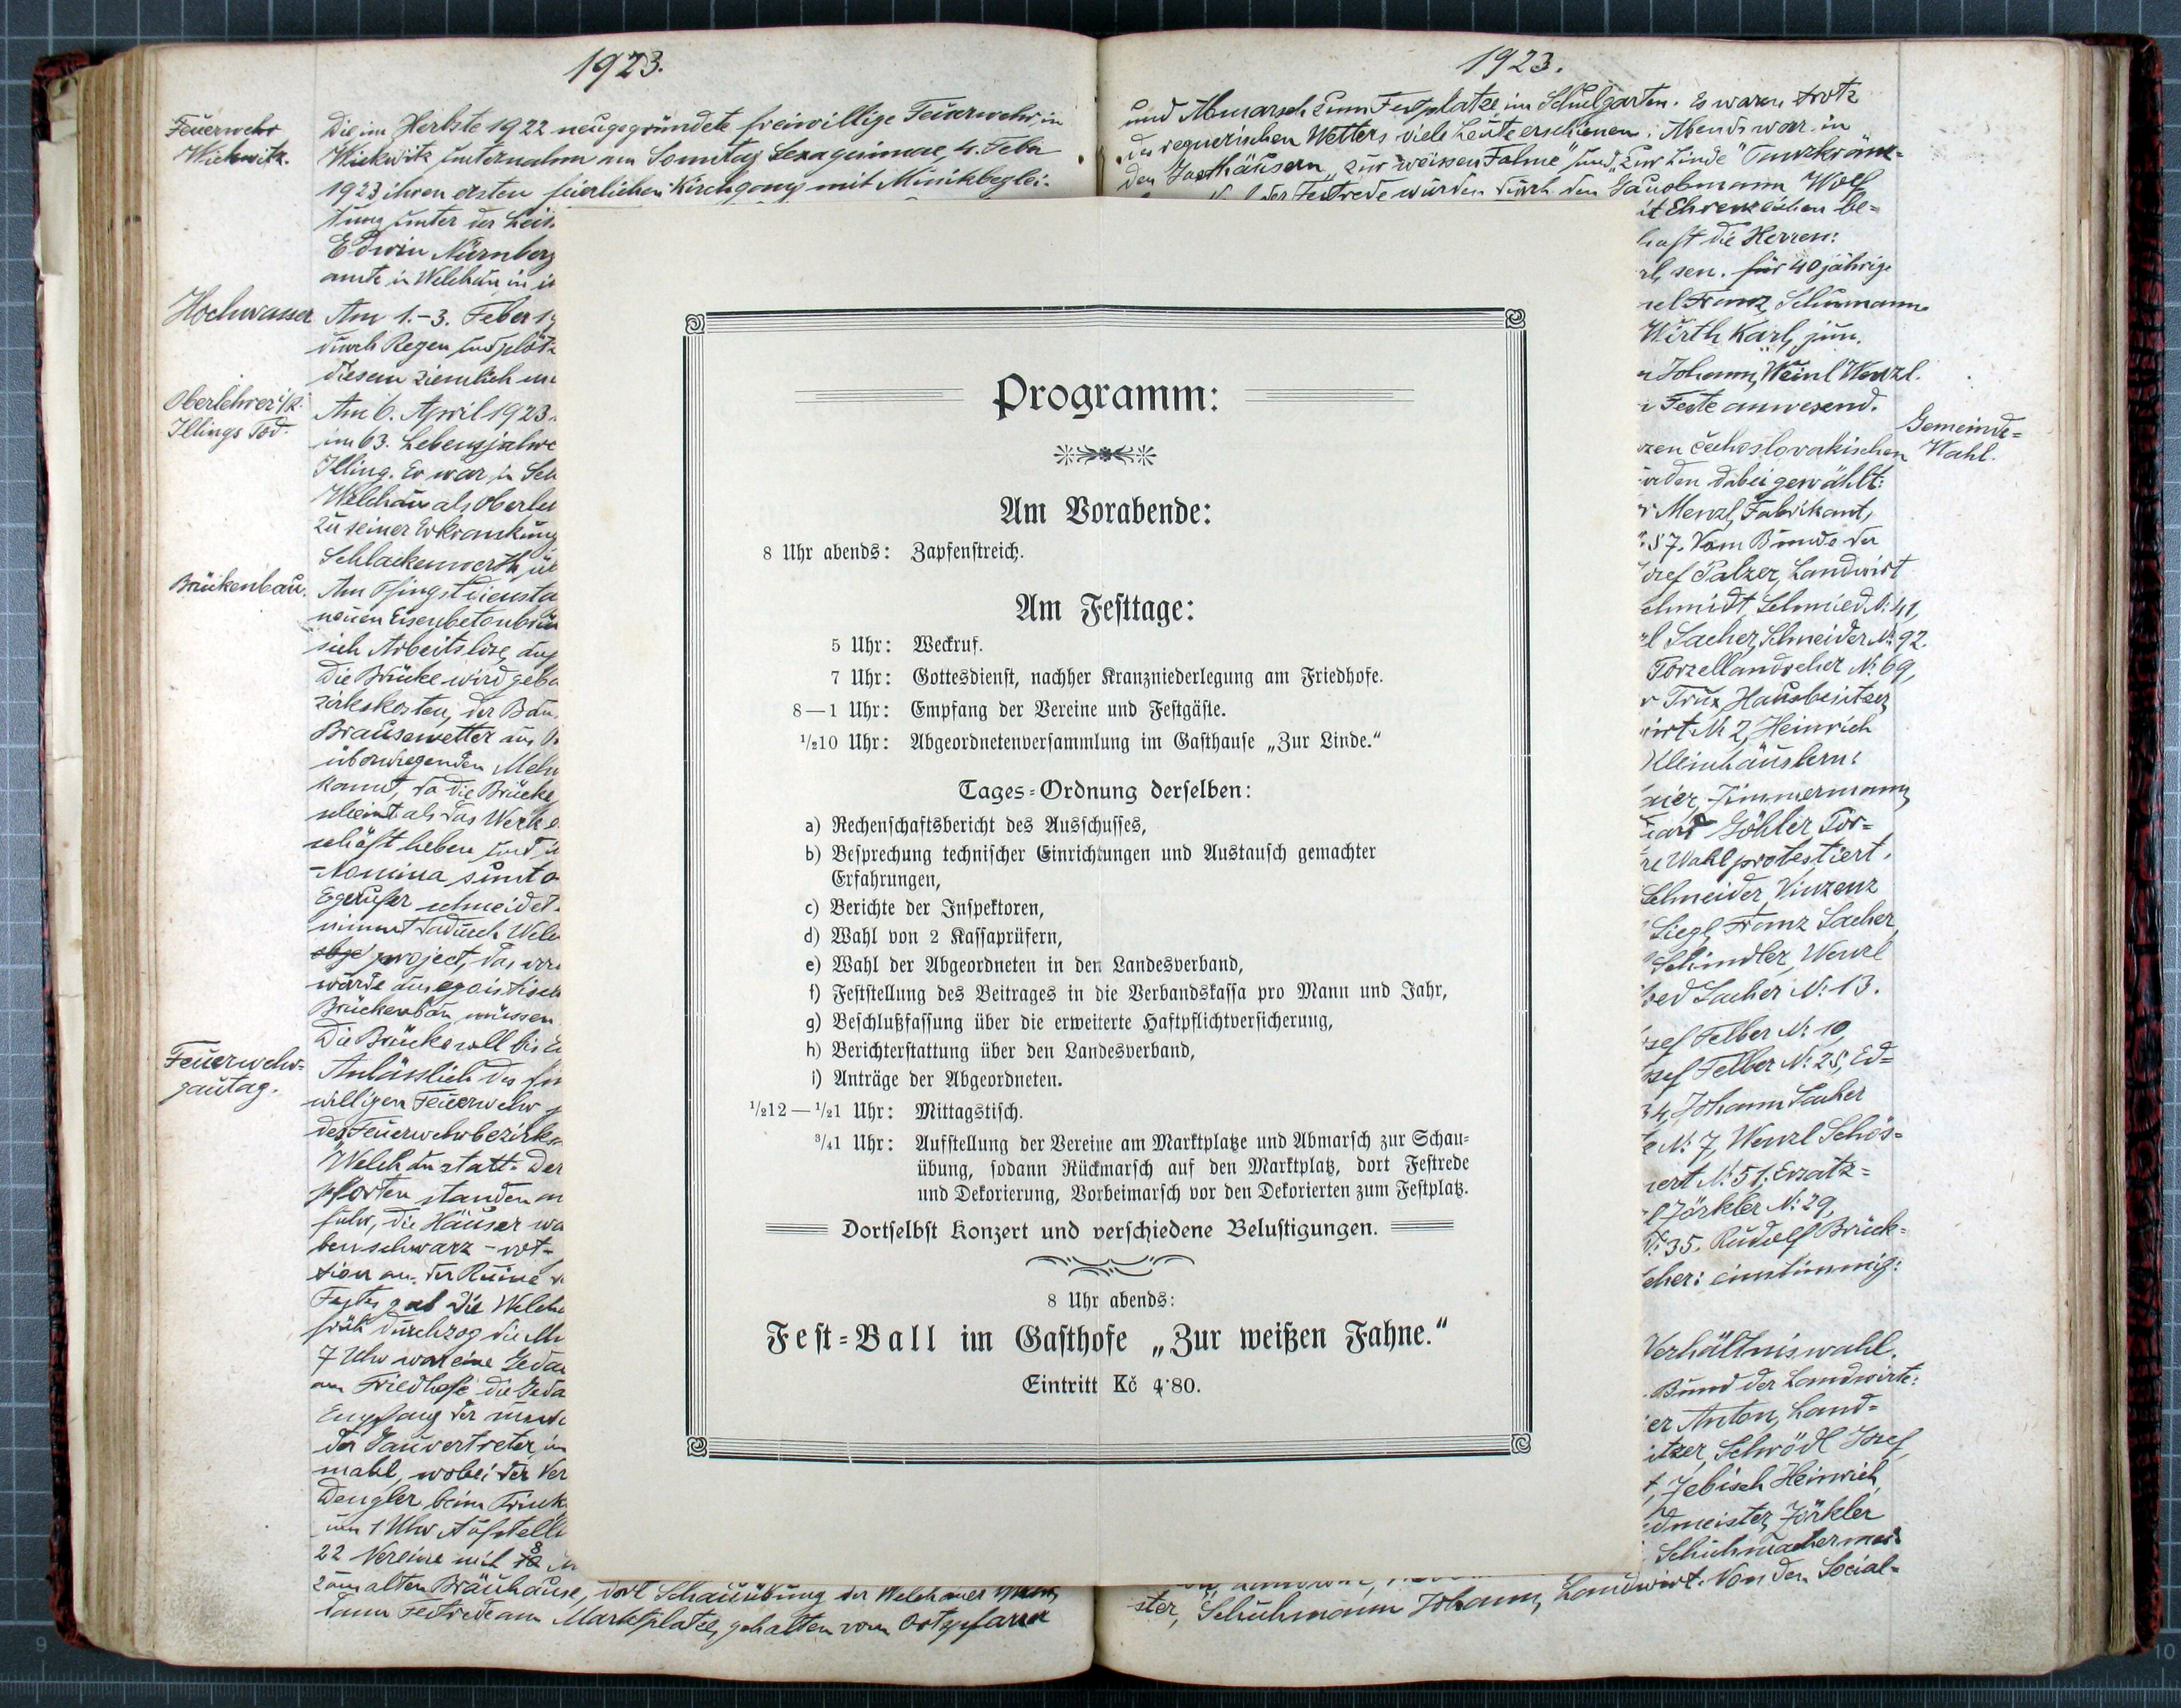 1923.
Feuerwehr
Wickwitz.
Die im Herbste 1922 neugegründete freiwillige Feuerwehr in
Wickwitz unternahm am Sonntag Sexagesimae, 4. Feber
1923 ihren ersten feierlichen Kirchgang mit Musikbeglei-
tung unter der Leit
Edwin Nürnberg
amte in Welchau in
Hochwasser
Am 1.-3. Feber 19
durch Regen und plötz
diesem ziemlich
Oberlehrer i/R.
Illings Tod.
Am 6. April 1923
im 63. Lebensjahre
Illing. Er war in
Welchau als Oberleh
zu seiner Erkrankung
Schlackenwerth
Brückenbau.
Am Pfingstdiensta
neuen Eisenbetonbrück
sich Arbeitslose
Die Brücke wird geba
zirkskosten, der Bau
Brausewetter aus
überwiegenden Mehr
kannt, da die Brücke
scheint als das Werk
schäft heben und
Nomina sunt o
Egerufer schneidet
nimmt dadurch Welch
project, das
würde aus egoistisch
Brückenbau müssen
Die Brücke soll bis
Feuerwehr-
gautag.
Anlässlich des
willigen Feuerwehr
des Feuerwehrbezirk
Welchau statt. Der
pforten standen
fuhr, die Häuser wa
ben schwarz-rot-
tion an der Ruine
Festes gab die Welch
früh durchzog die
7 Uhr war eine
am Friedhofe die
Empfang der
der Gauvertreter
mahl, wobei der Ver
Dengler beim Trink
um 1 Uhr Aufstell
22 Vereine mit 8
zum alten Bräuhause, dort Schauübung der Welchauer
dann Festrede am Marktplatze, gehalten vom Ortspfarrer
1923.
und Abmarsch zum Festplatze im Schulgarten. Es waren trotz
des regnerischen Wetters viele Leute erschienen. Abends war in
den Gasthäusern „zur weissen Fahne" und „zur Linde" Tanzkränz-
der Festrede wurden durch den Gauobmann Wolf
it Ehrenzeichen be-
haft die Herren:
rl, sen. für 40 jährige
Franz, Schumann
Wirth Karl, jun.
Johann, Weinl Wenzl.
Feste anwesend.
Gemeinde-
Wahl.
zen čechoslovakischen
rden dabei gewählt:
Menzl, Fabrikant,
57. Vom Bunde der
osef Palzer, Landwirt
chmidt Schmied N: 41,
rl Sacher, Schneider N: 92.
Porzellandreher N: 69,
Trux, Hausbesitzer
irt N: 2, Heinrich
Kleinhäuslern:
Zimmermann
Göhler Por-
re Wahl protestiert.
Schneider, Vinzenz
Siegl, Franz Sacher,
Schindler, Wenzl
Sacher N: 13.
sef Felber N: 10,
sef Felber N: 25, Ed-
34, Johann Sacher
N: 7, Wenzl Schös-
N: 51; Ersatz-
Zörkler N: 29,
N: 35. Rudolf Brück-
cher: einstimmig:
Verhältniswahl.
Bund der Landwirte:
er Anton, Land-
itzer, Schrödl Josef,
t, Zebisch Heinrich,
dmeister, Zörkler
Schuhmachermei-
ster, Schuhmann Johann, Landwirt. Von den Social-
Programm:
Am Vorabende:
8 Uhr abends: Zapfenstreich.
Am Festtage:
5 Uhr: Weckruf.
7 Uhr: Gottesdienst, nachher Kranzniederlegung am Friedhofe.
8—1 Uhr: Empfang der Vereine und Festgäste.
1/210 Uhr: Abgeordnetenversammlung im Gasthause „Zur Linde."
Tages-Ordnung derselben:
a) Rechenschaftsbericht des Ausschusses,
b) Besprechung technischer Einrichtungen und Austausch gemachter
Erfahrungen,
c) Berichte der Inspektoren,
d) Wahl von 2 Kassaprüfern,
e) Wahl der Abgeordneten in den Landesverband,
f) Feststellung des Beitrages in die Verbandskassa pro Mann und Jahr,
g) Beschlußfassung über die erweiterte Haftpflichtversicherung,
h) Berichterstattung über den Landesverband,
i) Anträge der Abgeordneten.
1/212 — 1/21 Uhr: Mittagstisch.
3/41 Uhr: Aufstellung der Vereine am Marktplatze und Abmarsch zur Schau-
übung, sodann Rückmarsch auf den Marktplatz, dort Festrede
und Dekorierung, Vorbeimarsch vor den Dekorierten zum Festplatz.
Dortselbst Konzert und verschiedene Belustigungen.
8 Uhr abends:
Fest-Ball im Gasthofe „Zur weißen Fahne."
Eintritt Kč 4·80.
9
10